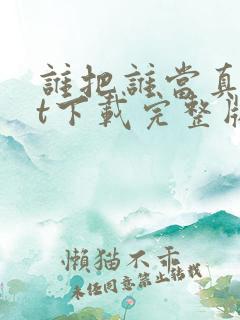 誰把誰當真
t下載完整版
懶猫不乖
未任同意禁止转载